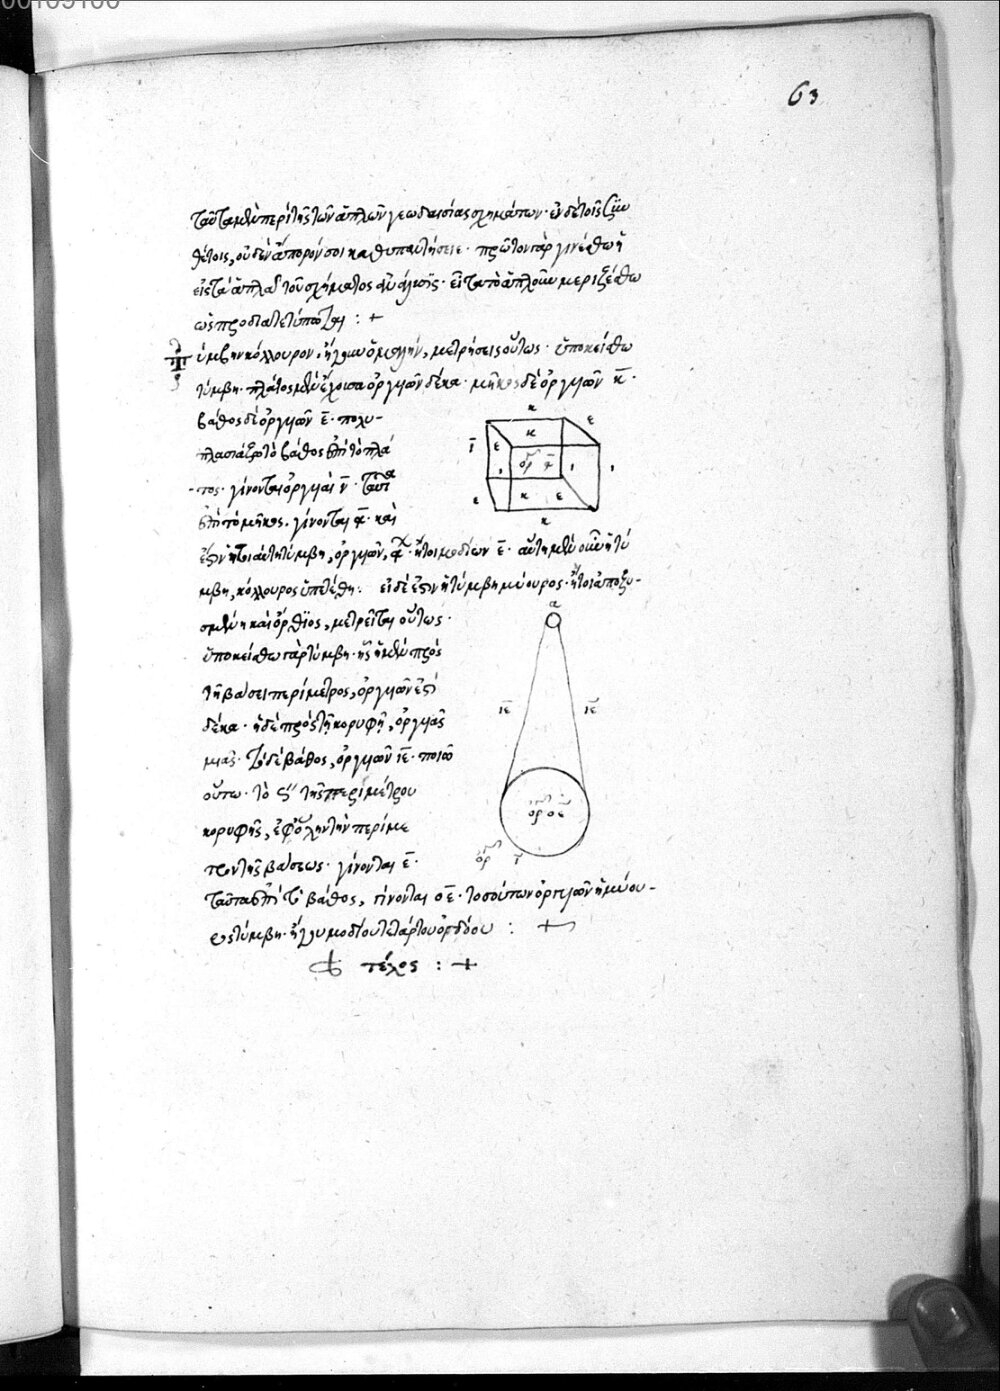 63
ταῦτα μὲν περὶ τῆς τῶν ἁπλῶν γεωδαισίας σχημάτων· ἐν δὲ τοῖς συν
θέτοις, οὐδὲν ἄπορόν σοι καθυπαντήσειε· πρῶτον γὰρ γινέσθω ἡ
εἰς τὰ ἁπλᾶ τοῦ σχήματος ἀνάλυσις· εἶτα τὸ ἁπλοῦν μεριζέσθω
ὡς προδιατετύπωται : +
Τύμβην κόλουρον, ἤγουν ὁμαλὴν, μετρήσεις οὕτως· ὑποκείσθω
τύμβη· πλάτος μὲν ἔχουσα ὀργυιῶν δέκα· μῆκος δὲ ὀργυιῶν κ̅·
βάθος δὲ ὀργυιῶν ε̅· πολυ-
πλασίαζε τὸ βάθος ἐπὶ τὸ πλά
τος· γίνονται ὀργυιαὶ ν̅· ταῦτα
ἐπὶ τὸ μῆκος. γίνονται ͵α̅· καὶ
ἔστιν ἡ τοιαύτη τύμβη, ὀργυιῶν, ͵α̅· ἤτοι μοδίων ε̅· αὕτη μὲν οὖν ἡ τύ
μβη, κόλουρος ὑπετέθη: εἰ δέ ἐστιν ἡ τύμβη μύουρος· ἤτοι ἀποξυ-
σμένη καὶ ὄρθιος, μετρεῖται οὕτως·
ὑποκείσθω γὰρ τύμβη· ἧς ἡ μὲν πρὸς
τῇ βάσει περίμετρος, ὀργυιῶν ἐστὶ
δέκα· ἡ δὲ πρὸς τῇ κορυφῇ, ὀργυιᾶς
μιᾶς· τὸ δὲ βάθος, ὀργυιῶν ιε̅· ποιῶ
οὕτω· τὸ ς″ τῆς περιμέτρου
κορυφῆς, ἐφ' ὅλην τὴν περίμε
τρον τῆς βάσεως· γίνονται ε̅·
ταῦτα ἐπὶ τὸ βάθος, γίνονται οε̅· τοσούτων ὀργυιῶν ἡ μύου-
ρος τύμβη· ἤγουν μοδίου τετάρτου ὀγδόου : +
τέλος : +
κ
ε
κ
ι̅
ε
κ
ε
ε
κ
α
ιε̅
ιε̅
ὀρ οε̅
ὀρ ι̅